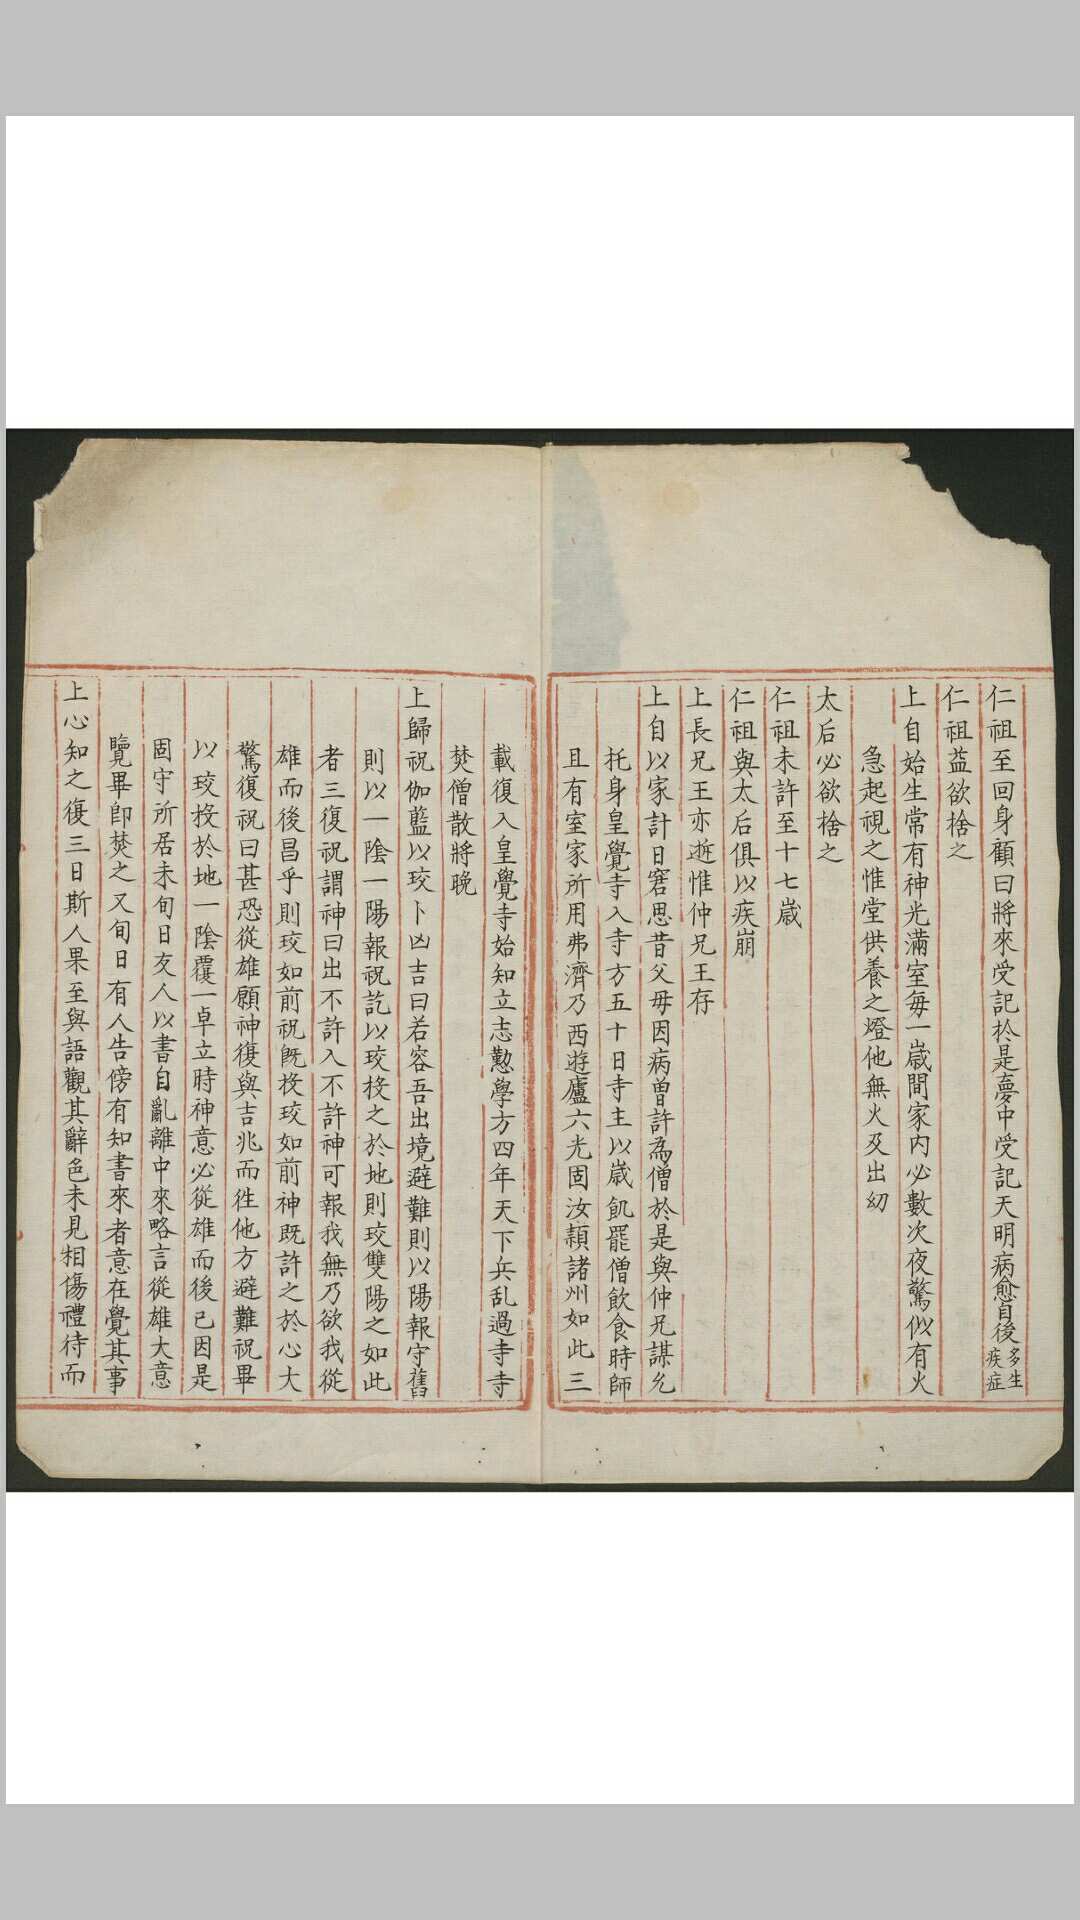 仁祖至回身顧曰將來受記於是夢中受記天明病愈自後多生疾症
仁祖益欲捨之
上自始生常有神光滿室每一歲間家内必數次夜驚似有火
急起視之惟堂供養之燈他無火及出幼
太后必欲捨之
仁祖未許至十七歲
仁祖與太后俱以疾崩
上長兄王亦逝惟仲兄王存
上自以家計日窘思昔父母因病曾許為僧於是與仲兄謀允
托身皇覺寺入寺方五十日寺主以歲飢罷僧飲食時師
且有室家所用弗濟乃西遊廬六光固汝頴諸州如此三
載復入皇覺寺始知立志懃學方四年天下兵乱過寺寺
焚僧散將晚
上歸祝伽藍以珓卜凶吉曰若容吾出境避難則以陽報守舊
則以一陰一陽報祝訖以珓投之於地則珓雙陽之如此
者三復祝謂神曰出不許入不許神可報我無乃欲我從
雄而後昌乎則珓如前祝既投珓如前神既許之於心大
驚復祝曰甚恐從雄願神復與吉兆而徃他方避難祝畢
以珓投於地一陰覆一卓立時神意必從雄而後已因是
固守所居未旬日友人以書自亂離中來略言從雄大意
覽畢即焚之又旬日有人告傍有知書來者意在覺其事
上心知之復三日斯人果至與語觀其辭色未見相傷禮待而